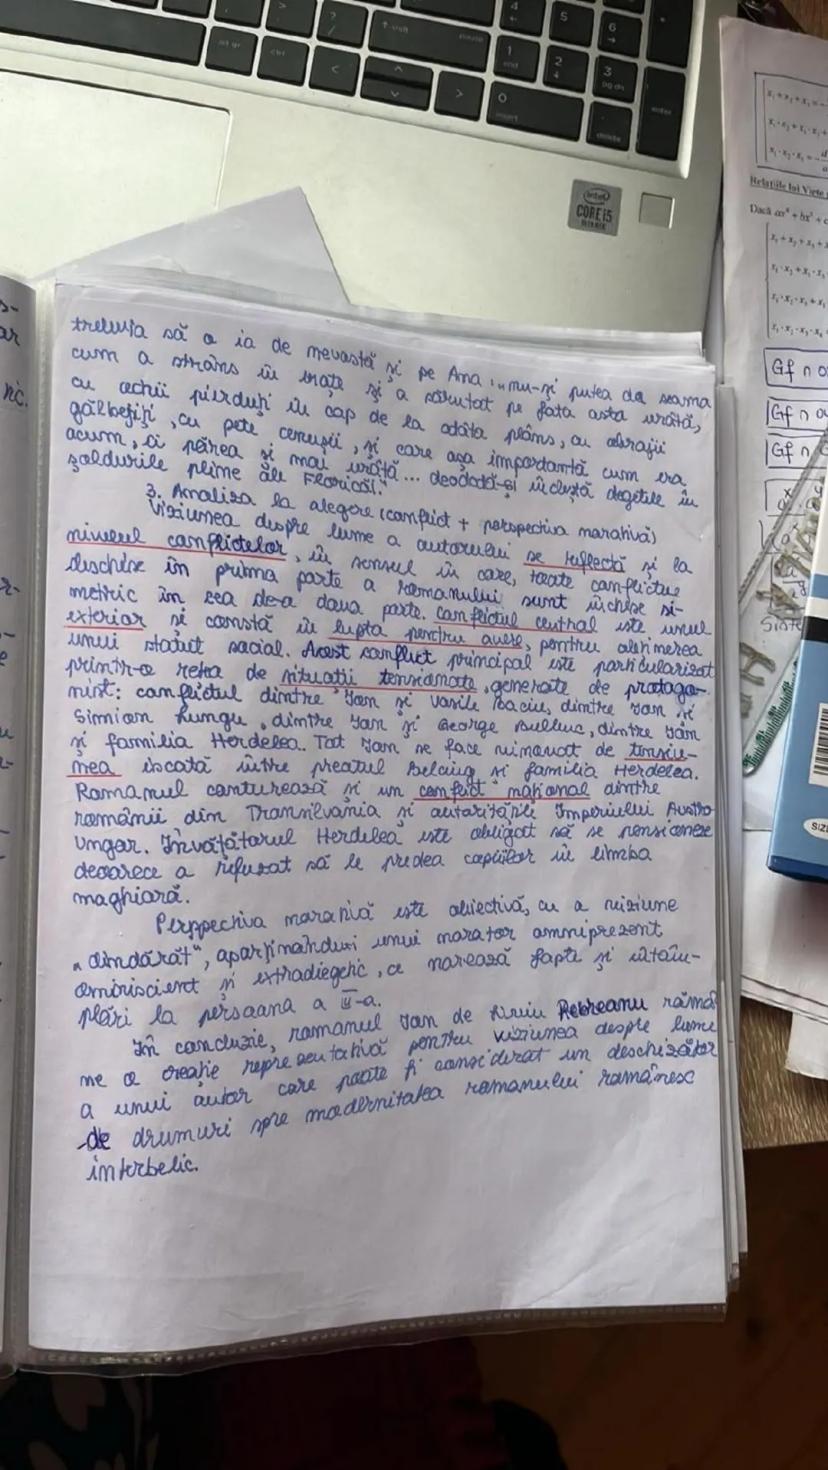 trebuia să o ia de nevastă și pe Ana: „nu-și putea da seama
cum a strâns în brațe și a sărutat pe fata asta urâtă,
cu ochii pierduți în cap de la atâta plâns, cu obrajii
gălbejiți, cu pete cenușii, și care așa importantă cum era
acum, îi părea și mai urâtă... deodată-și încleștă degetele în
șoldurile pline ale Floricăi."
3. Analiza la alegere (conflict + perspectiva narativă)
Viziunea despre lume a autorului se reflectă și la
nivelul conflictelor, în sensul în care, toate conflictele
deschise în prima parte a romanului sunt închise si-
metric în cea de-a doua parte. Conflictul central este unul
exterior și constă în lupta pentru avere, pentru obținerea
unui statut social. Acest conflict principal este particularizat
printr-o rețea de situații tensionate, generate de protago-
nist: conflictul dintre Ion și Vasile Baciu, dintre Ion și
Simion Lungu, dintre Ion și George Bulbuc, dintre Ion
și familia Herdelea. Tot Ion se face vinovat de tensiu-
nea iscată între preotul Belciug și familia Herdelea.
Romanul conturează și un conflict național dintre
românii din Transilvania și autoritățile Imperiului Austro
Ungar. Învățătorul Herdelea este obligat să se pensioneze
deoarece a refuzat să le predea copiilor în limba
maghiară.
Perspectiva narativă este obiectivă, cu o viziune
„dindărăt", aparținându-i unui narator omniprezent
omniscient și extradiegetic, ce narează fapte și întâm-
plări la persoana a III-a.
În concluzie, romanul Ion de Liviu Rebreanu rămâ
ne o creație reprezentativă pentru viziunea despre lume
a unui autor care poate fi considerat un deschizător
de drumuri spre modernitatea romanului românesc
interbelic.
intel
CORE i5
Relațiile lui Viete
Dacă ax⁴ + bx³ + c
Gf ∩ O
Gf ∩ O
Gf ∩
SIZ